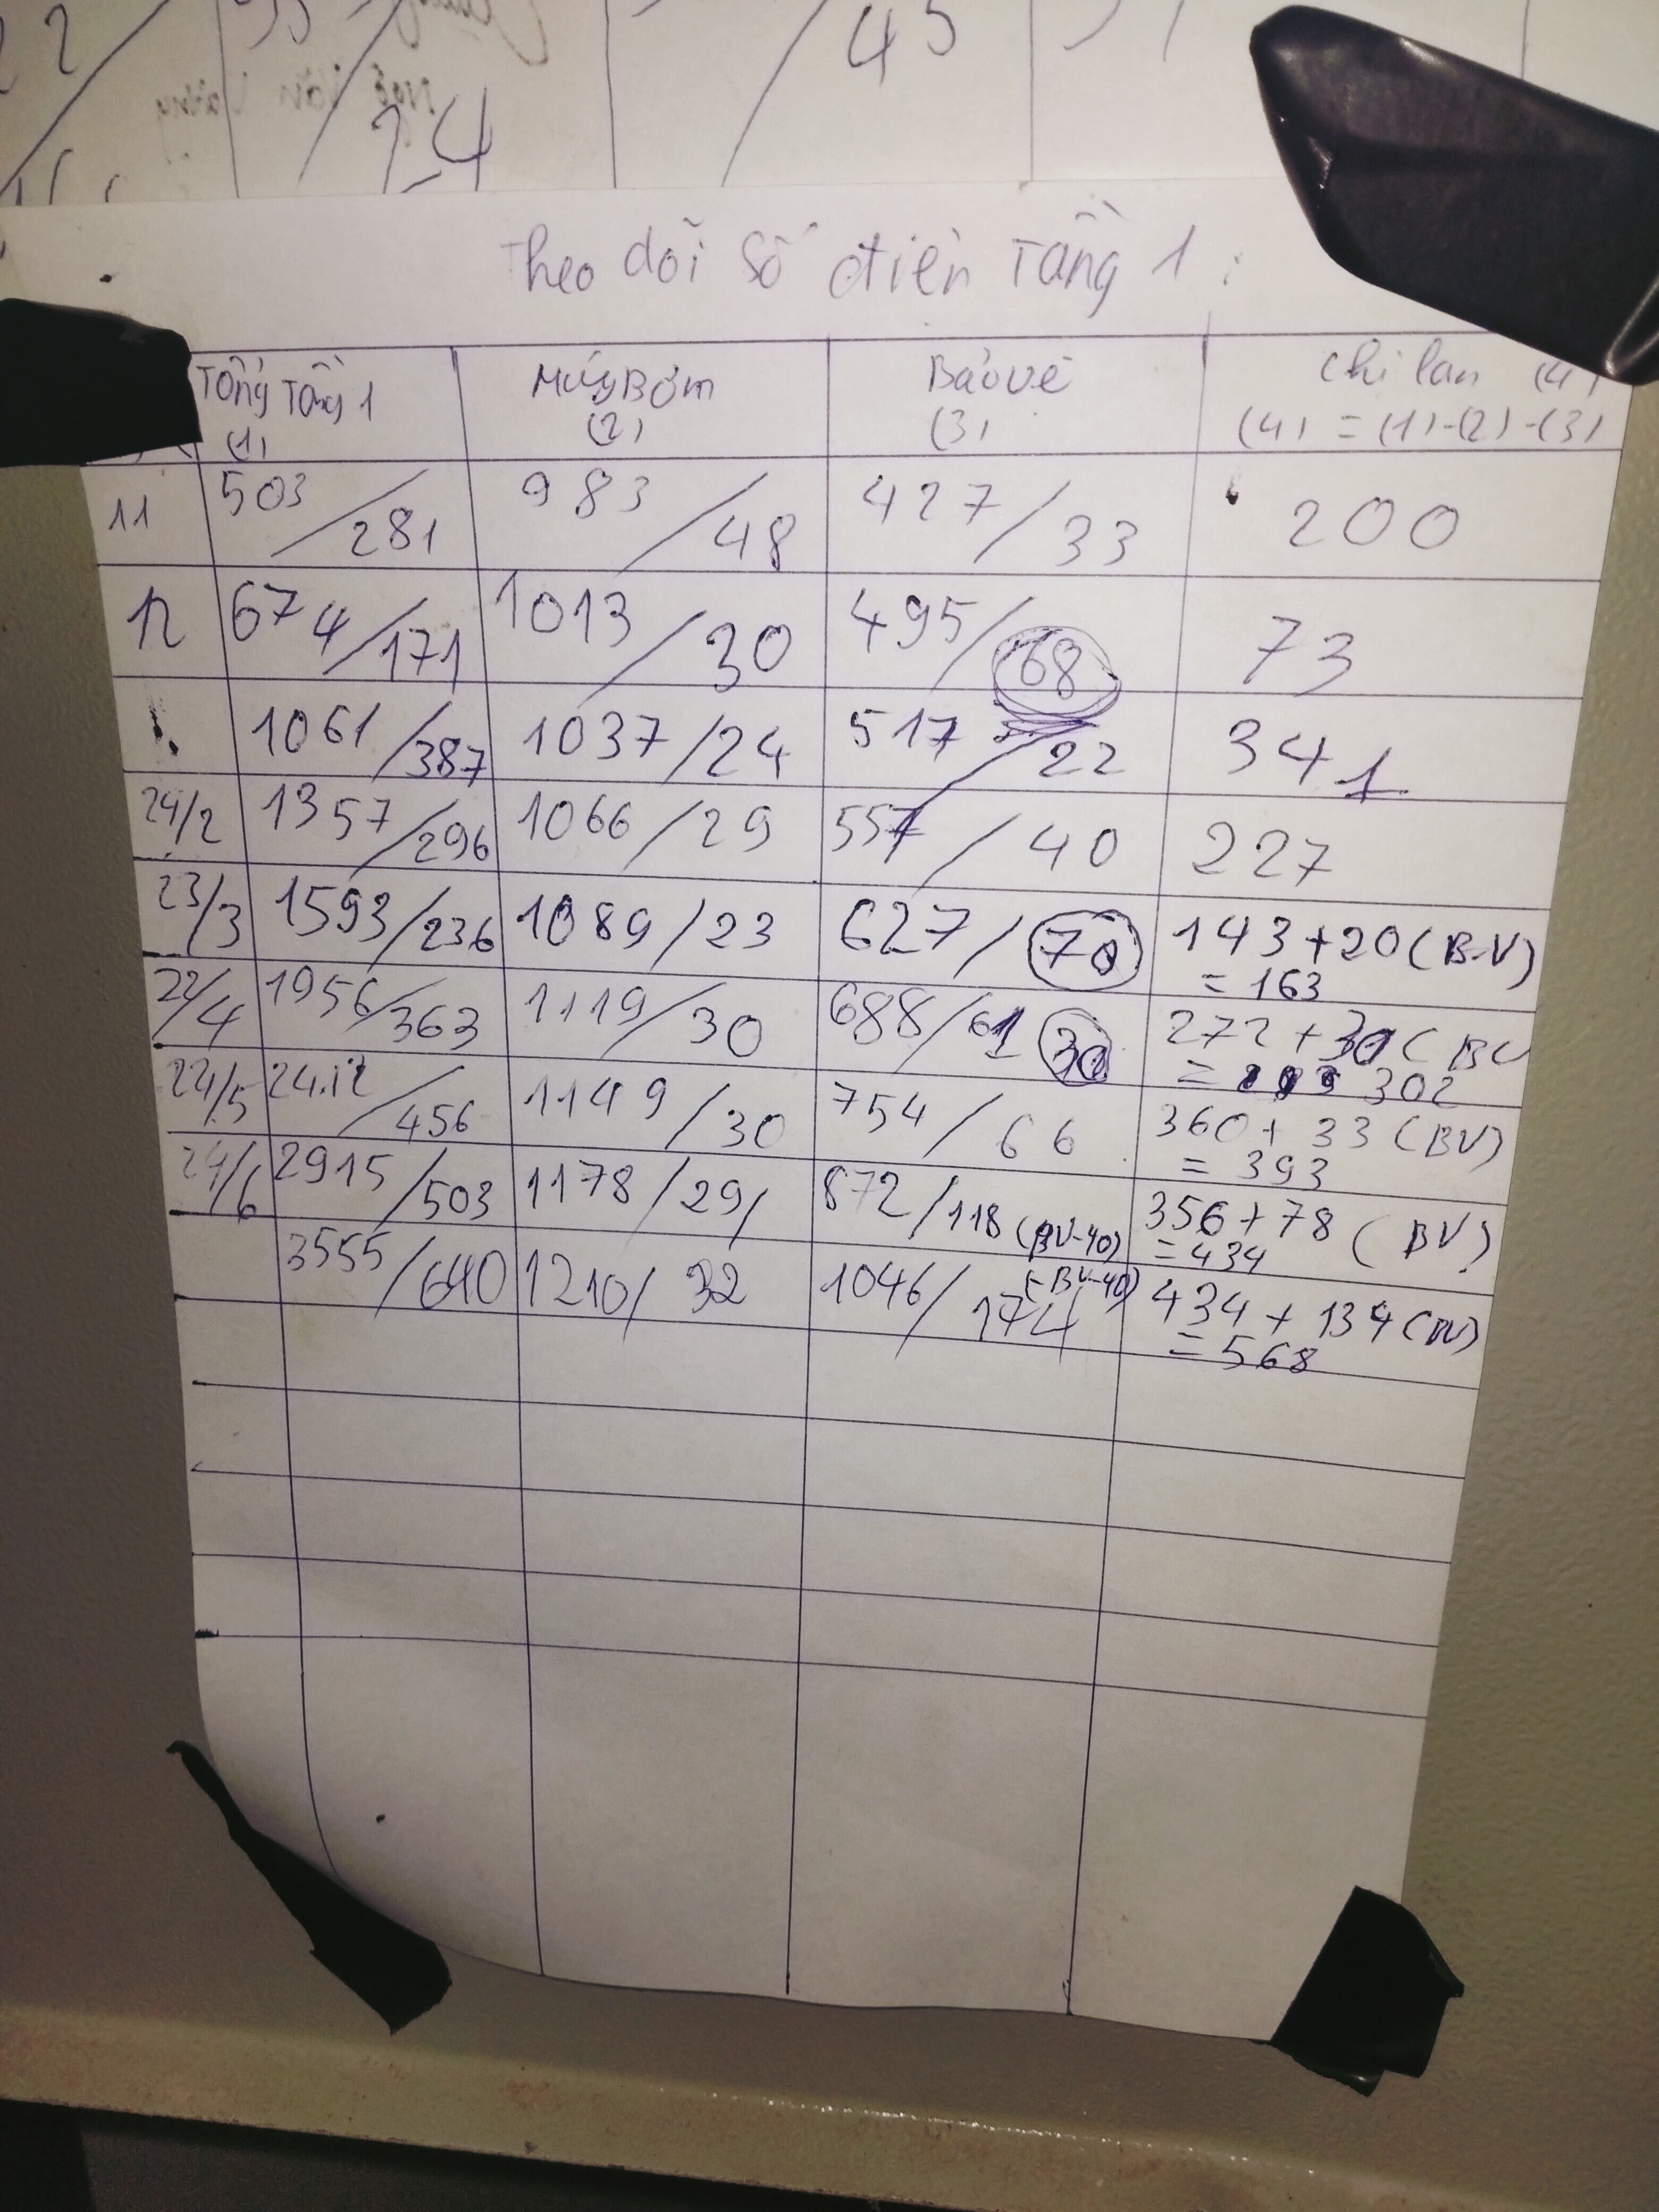 45
24
Theo dõi số điện Tầng 1 :
Tổng Tầng 1 Máy Bơm Bảo vệ Chị lan (4)
(1) (2) (3) (4) = (1)-(2)-(3)
11 503/281 983/48 427/33 200
12 674/171 1013/30 495/68 73
1061/387 1037/24 517/22 341
24/2 1357/296 1066/29 557/40 227
23/3 1593/236 1089/23 627/70 143+20(BV)
= 163
22/4 1956/363 1119/30 688/61 30 272+30(BV
= 302
24/5 2412/456 1149/30 754/66 360+33(BV)
= 393
24/6 2915/503 1178/29/ 872/118(BV-40) 356+78(BV)
= 434
3555/640 1210/32 1046/174 (-BV-40) 434+134(BV)
= 568